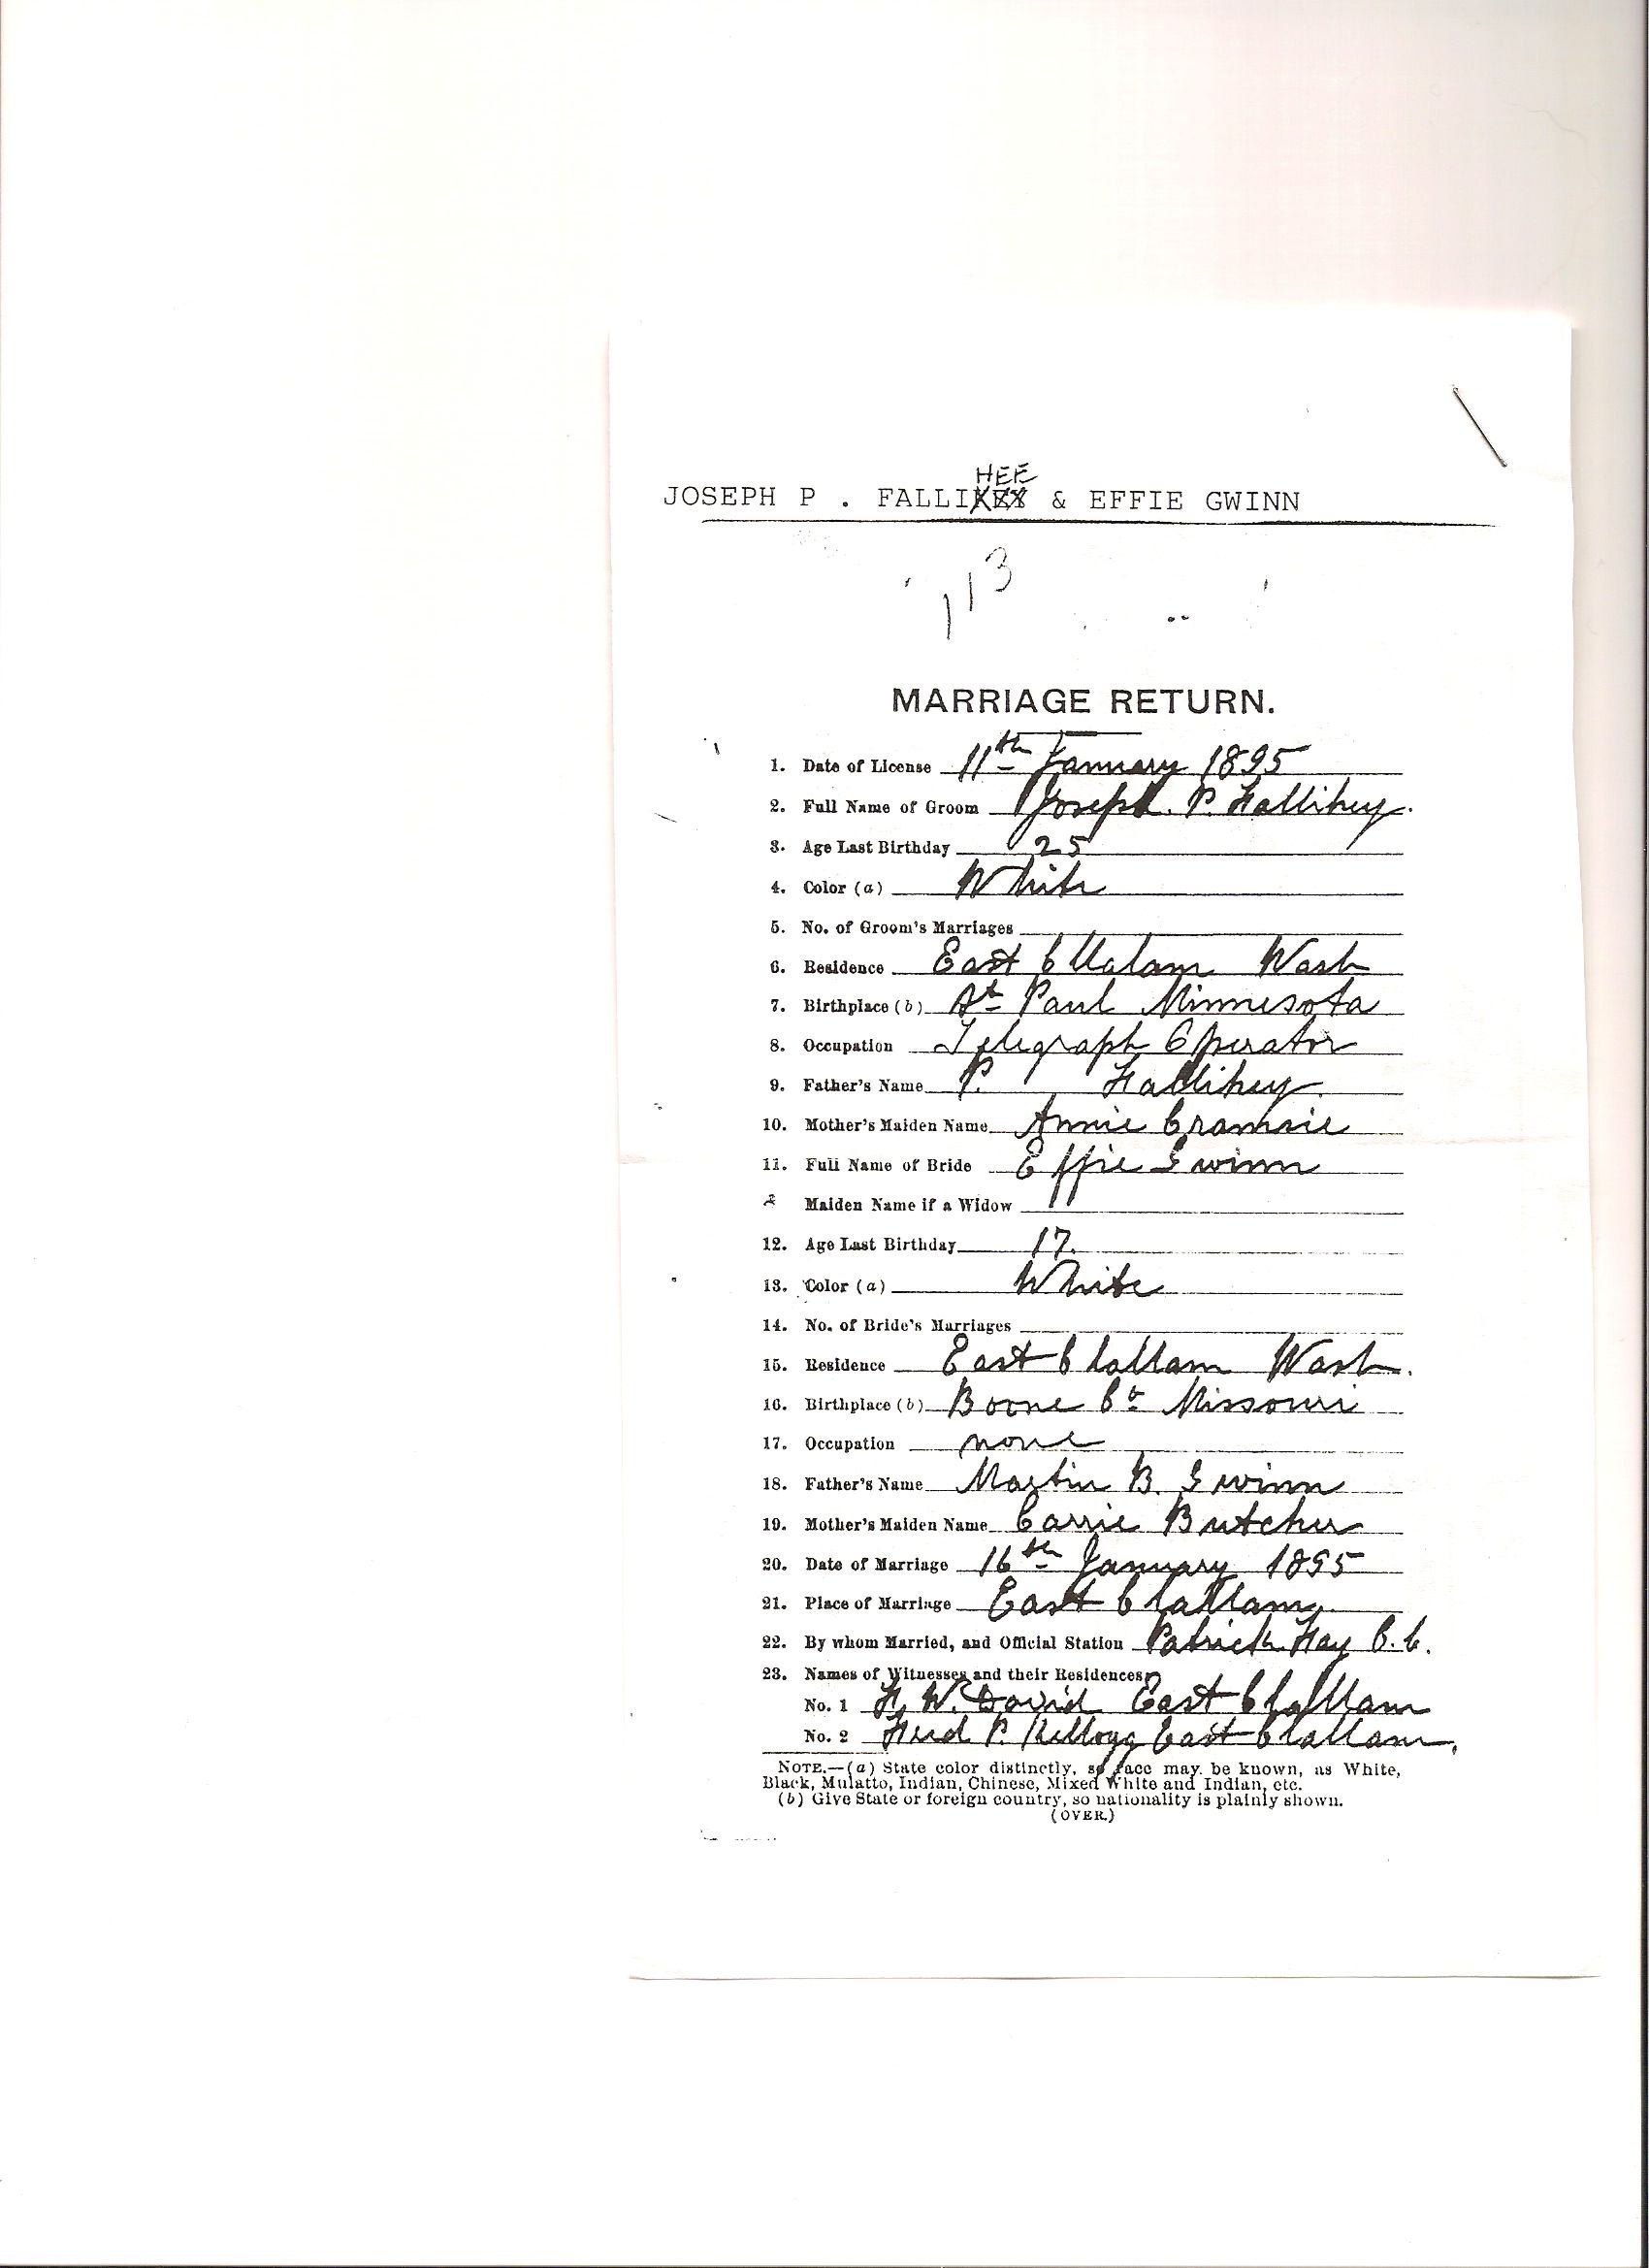 HEE
JOSEPH P . FALLIXEX & EFFIE GWINN
113
MARRIAGE RETURN.
1. Date of License 11th January 1895
2. Full Name of Groom Joseph. P. Fallihey.
3. Age Last Birthday 25
4. Color (a) White
5. No. of Groom's Marriages
6. Residence East Cllalam Wash
7. Birthplace (b) St Paul Minnesota
8. Occupation Telegraph Operator
9. Father's Name P. Fallihey.
10. Mother's Maiden Name Annie
11. Full Name of Bride Effie Gwinn
Maiden Name if a Widow
12. Age Last Birthday 17.
13. Color (a) White
14. No. of Bride's Marriages
15. Residence East Clallam Wash.
16. Birthplace (b) Boone Co Missouri
17. Occupation none
18. Father's Name Martin B. Gwinn
19. Mother's Maiden Name Carrie Butcher
20. Date of Marriage 16th January 1895
21. Place of Marriage East Clallam
22. By whom Married, and Official Station Patrick Hay C.C.
23. Names of Witnesses and their Residences
No. 1 W. David East Clallam
No. 2 Fred P. Kellogg East Clallam.
NOTE.—(a) State color distinctly, so race may be known, as White,
Black, Mulatto, Indian, Chinese, Mixed White and Indian, etc.
(b) Give State or foreign country, so nationality is plainly shown.
(OVER.)